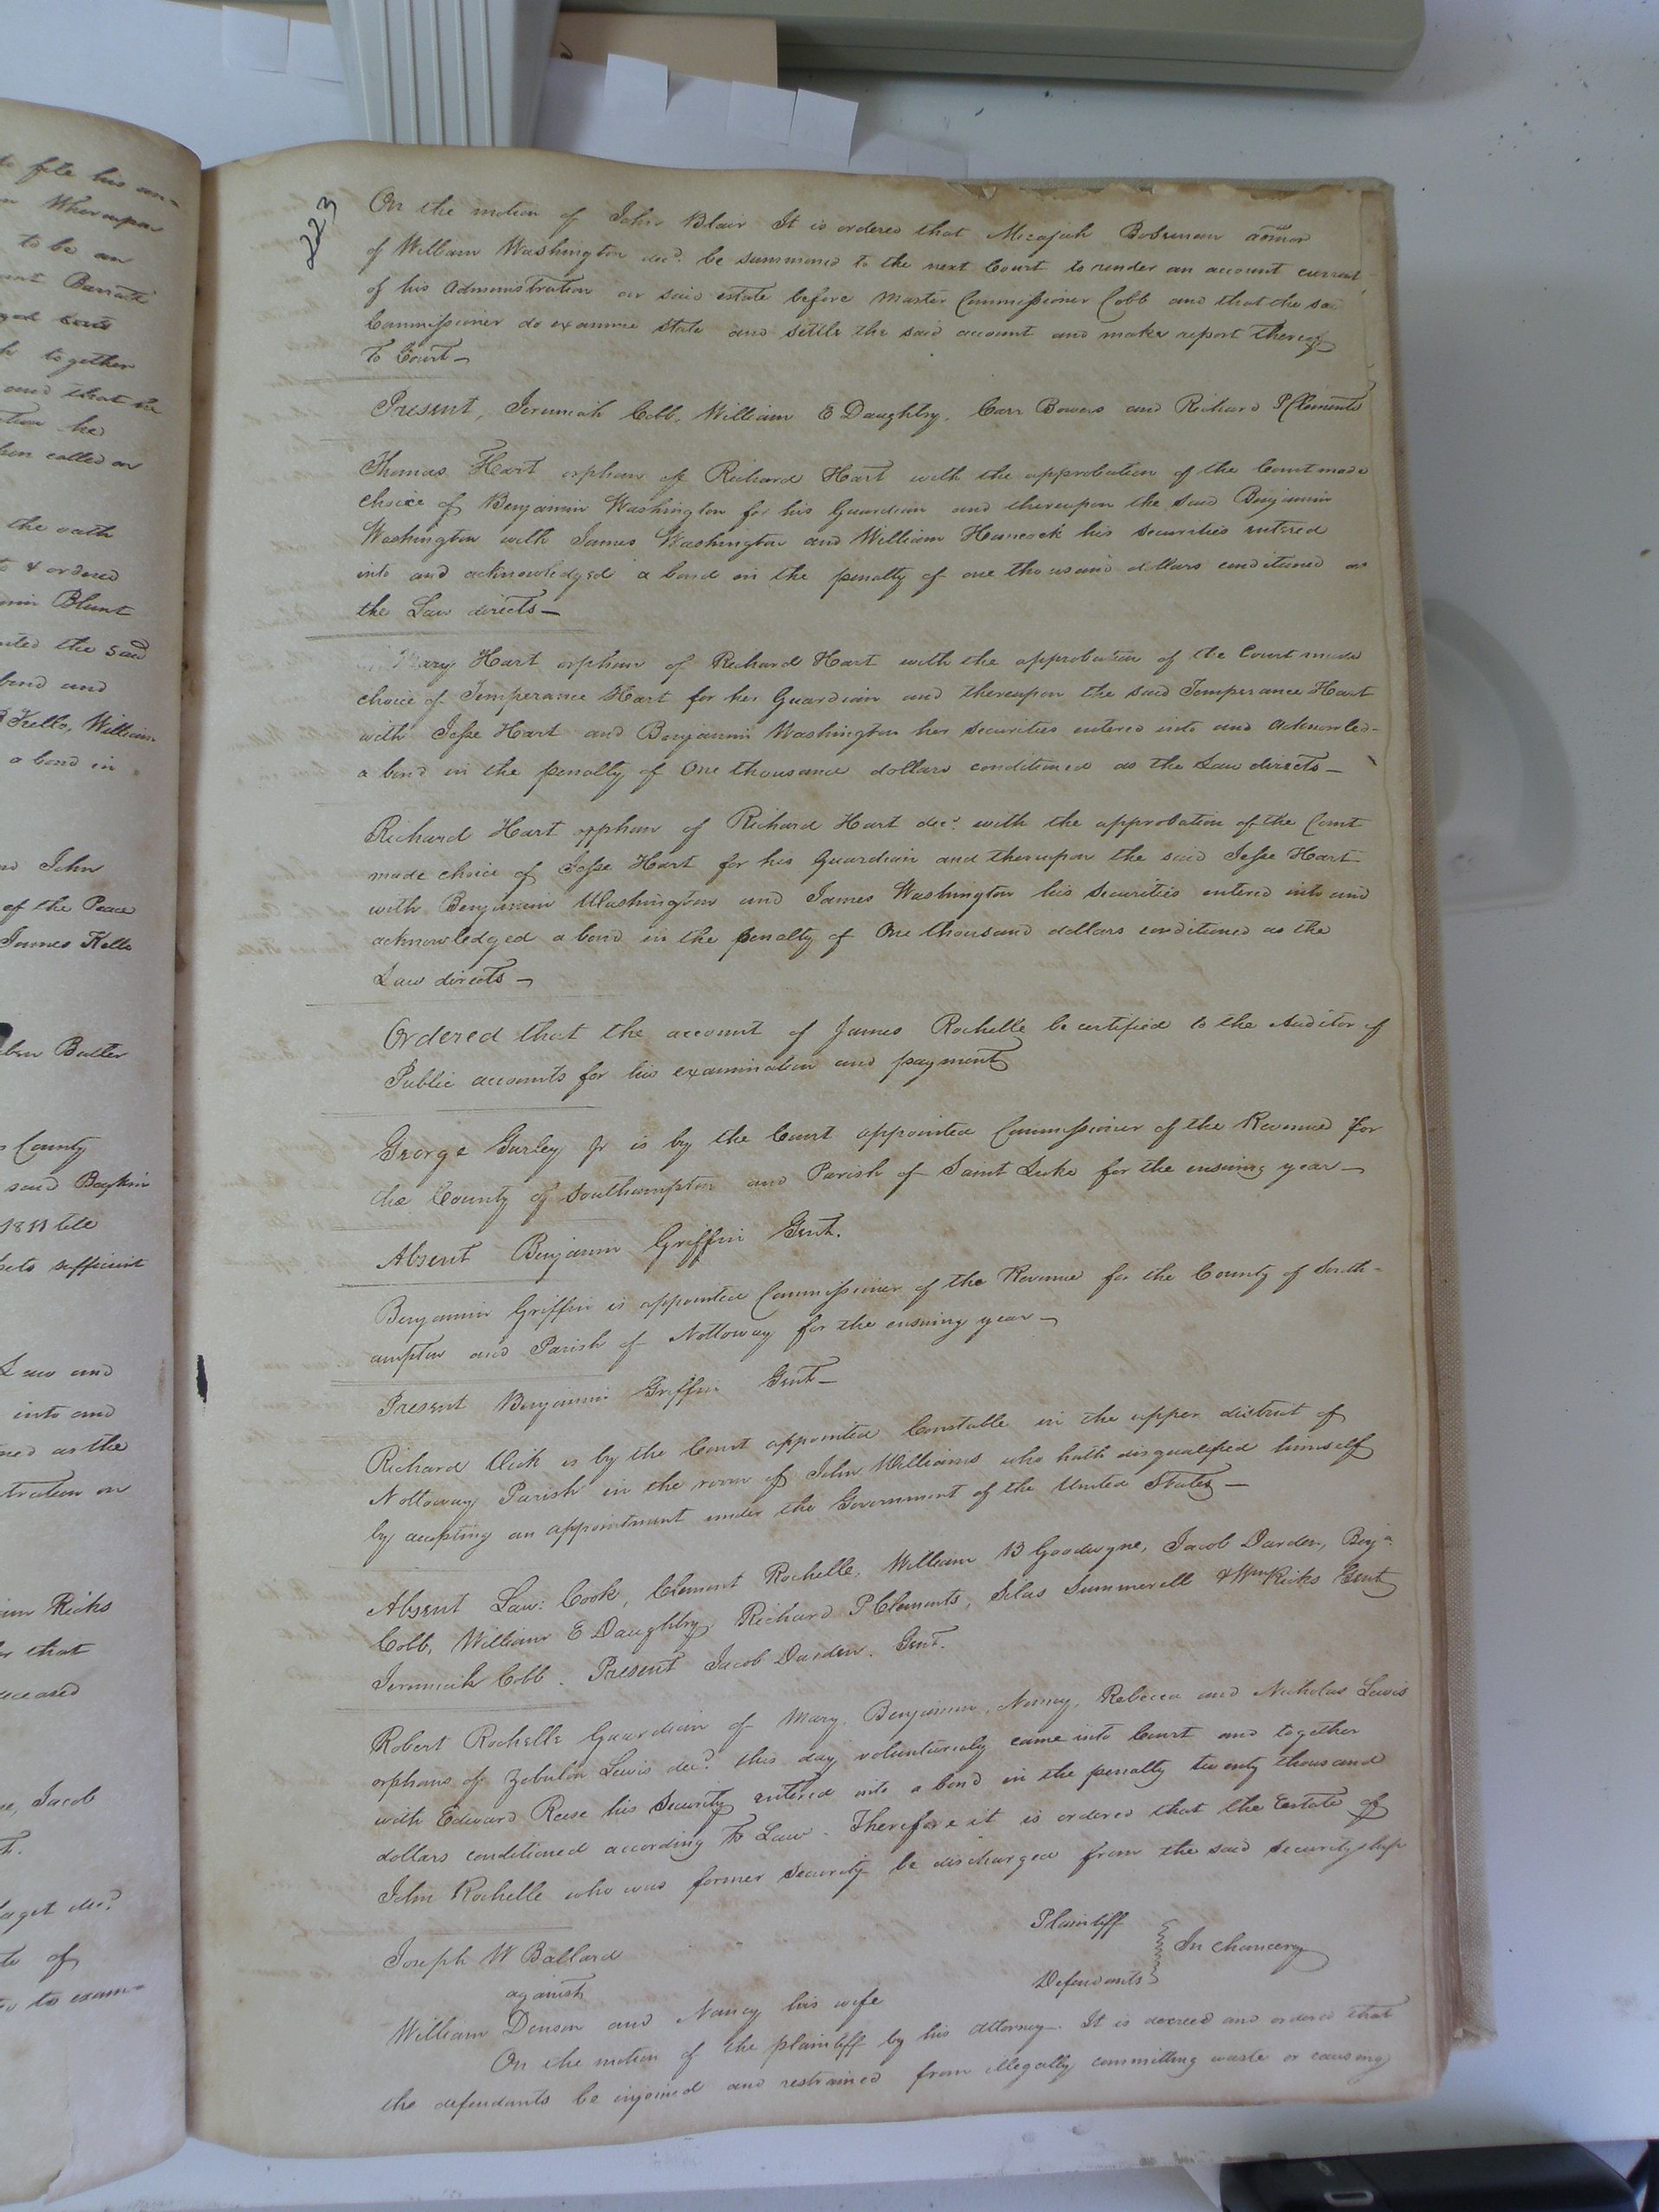 to file his an-
Whereupon
to be an
together
and that he
tion he
when called on
the oath
& ordered
Blunt
the said
bond and
Kello, William
a bond in
John
of the Peace
James Kello
Butler
County
said Boykin
sufficient
Law and
into and
as the
on
Ricks
that
deceased
Jacob
of
to exam-
223
On the motion of John Blair It is ordered that Micajah admor
of William Washington decd. be summoned to the next Court to render an account current
of his administration on said estate before Master Commissioner Cobb and that the sd
Commissioner do examine state and settle the said account and make report thereof
To Court—
Present, Jeremiah Cobb, William E Daughtry, Carr Bowers and Richard P Clements
Thomas Hart orphan of Richard Hart with the approbation of the Court made
choice of Benjamin Washington for his Guardian and thereupon the said Benjamin
Washington with James Washington and William Hancock his securities entered
into and acknowledged a bond in the penalty of one thousand dollars conditioned as
the Law directs—
Mary Hart orphan of Richard Hart with the approbation of the Court made
choice of Temperance Hart for her Guardian and thereupon the said Temperance Hart
with Jesse Hart and Benjamin Washington her securities entered into and acknowled-
a bond in the penalty of One thousand dollars conditioned as the Law directs—
Richard Hart orphan of Richard Hart decd. with the approbation of the Court
made choice of Jesse Hart for his Guardian and thereupon the said Jesse Hart
with Benjamin Washington and James Washington his securities entered into and
acknowledged a bond in the penalty of One thousand dollars conditioned as the
Law directs—
Ordered that the account of James Rochelle be certified to the Auditor of
Public accounts for his examination and payment
George Gurley Jr is by the Court appointed Commissioner of the Revenue for
the County of Southampton and Parish of Saint Luke for the ensuing year—
Absent Benjamin Griffin Gent.
Benjamin Griffin is appointed Commissioner of the Revenue for the County of South-
ampton and Parish of Nottoway for the ensuing year—
Present Benjamin Griffin Gent—
Richard Vick is by the Court appointed Constable in the upper district of
Nottoway Parish in the room of John Williams who hath disqualified himself
by accepting an appointment under the Government of the United States—
Absent Law: Cook, Clement Rochelle, William B Goodwyne, Jacob Darden, Benja.
Cobb, William E Daughtry, Richard P Clements, Silas Summerell & Wm Ricks Gent
Jeremiah Cobb. Present Jacob Darden. Gent.
Robert Rochelle Guardian of Mary, Benjamin, Nancy, Rebecca and Nicholas Lewis
orphans of Zebulon Lewis decd. this day voluntarialy came into Court and together
with Edward Reese his Security entered into a bond in the penalty twenty thousand
dollars conditioned according to Law. Therefore it is ordered that the Estate of
John Rochelle who was former security be discharged from the said securityship
Joseph W Ballard Plaintiff
against In Chancery
William Denson and Nancy his wife Defendants
On the motion of the plaintiff by his attorney. It is decreed and ordered that
the defendants be injoined and restrained from illegally committing waste or causing